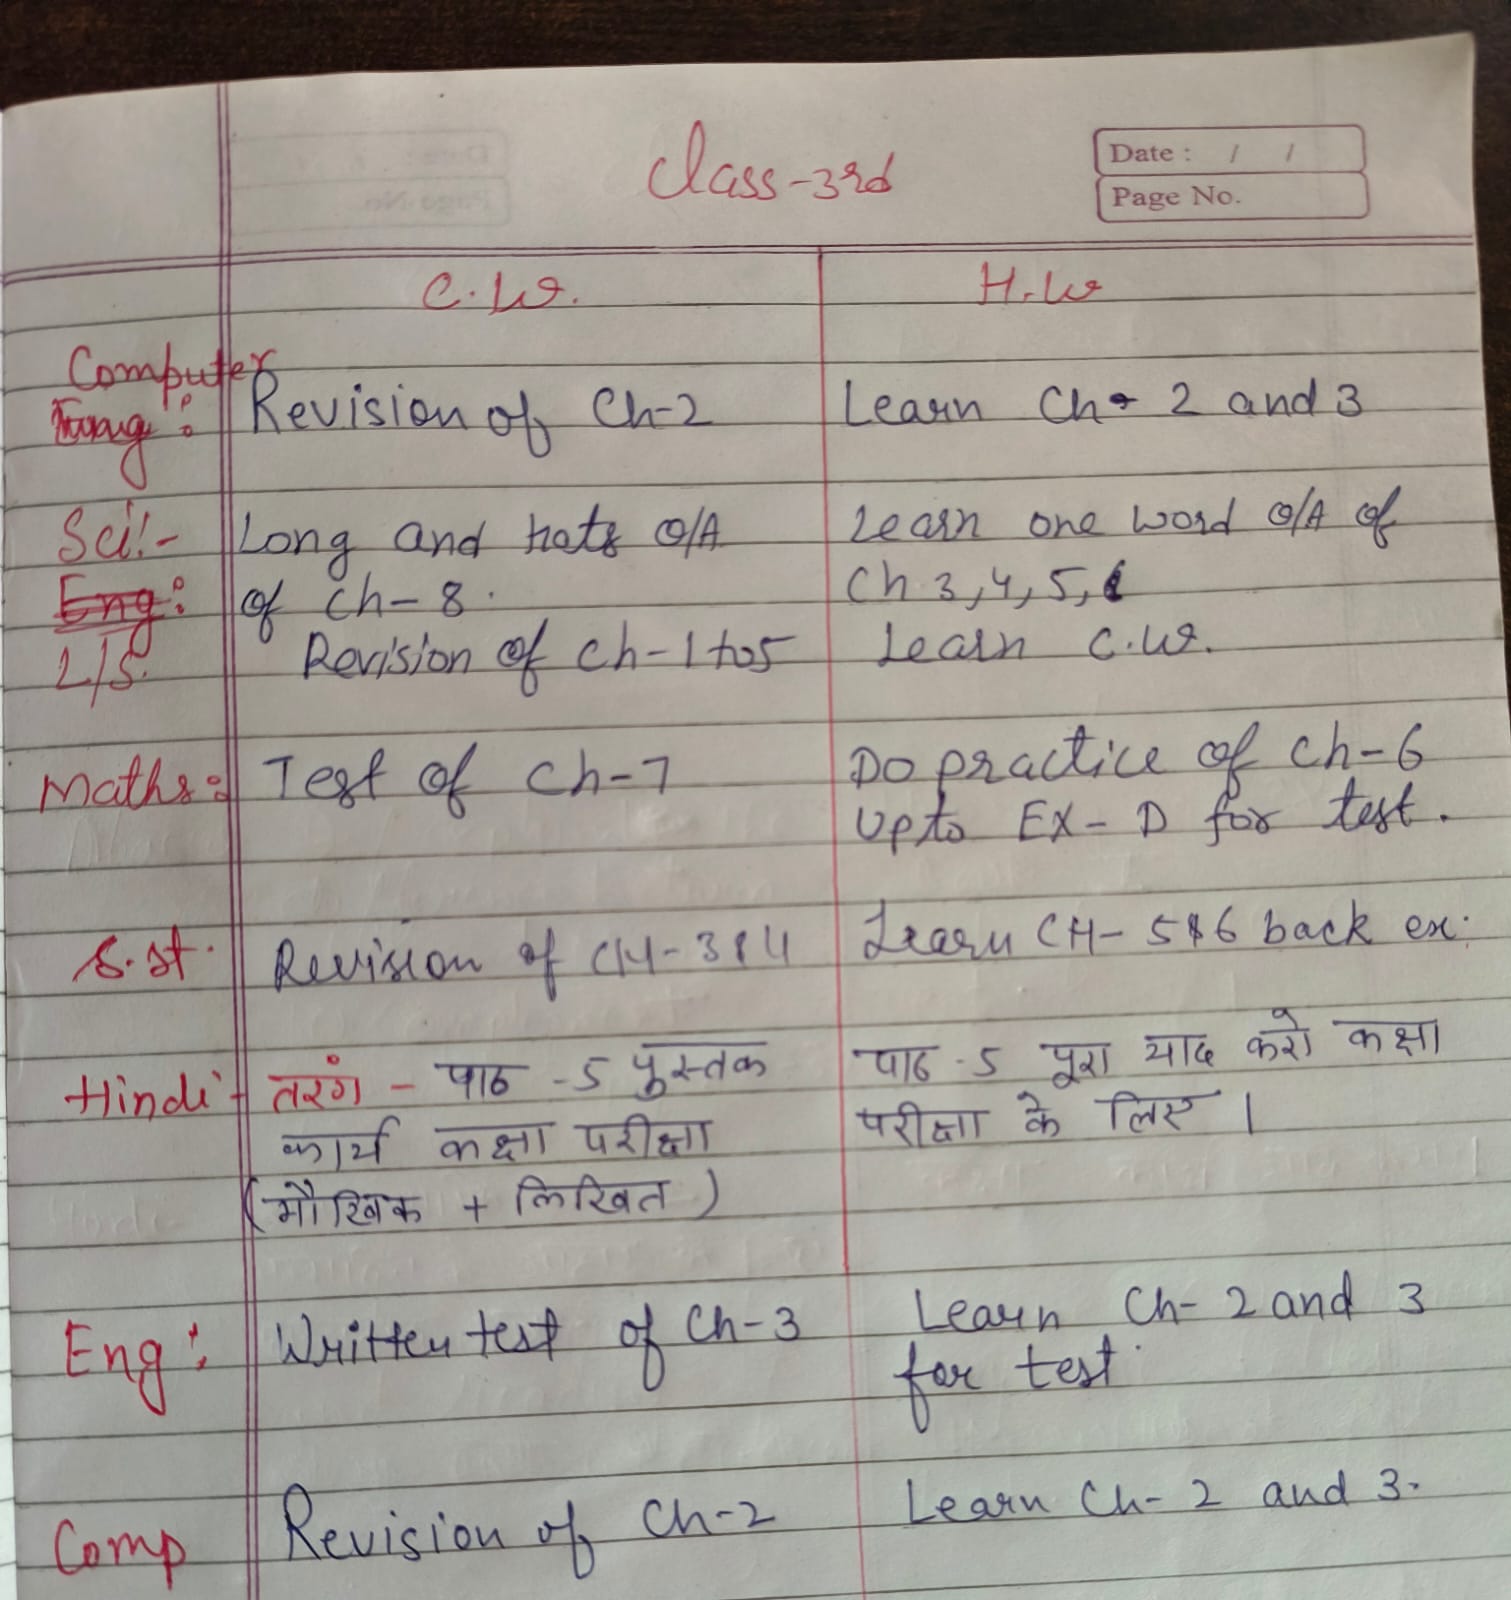 Class-3rd
Date : / /
Page No.
C.W. H.W
Computer
Eng : Revision of Ch-2 Learn Ch- 2 and 3
Sci:- Long and hots Q/A Learn one word Q/A of
Eng: of ch-8. Ch 3,4,5,6
L/S. Revision of ch-1 to 5 Learn C.W.
Maths: Test of Ch-7 Do practice of Ch-6
Upto EX-D for test.
S.st. Revision of CH-3&4 Learn CH- 5&6 back ex.
Hindi- तरंग - पाठ -5 पुस्तक पाठ -5 पूरा याद करो कक्षा
कार्य कक्षा परीक्षा परीक्षा के लिए ।
(मौखिक + लिखित)
Eng: Written test of Ch-3 Learn Ch- 2 and 3
for test.
Comp Revision of Ch-2 Learn Ch- 2 and 3.